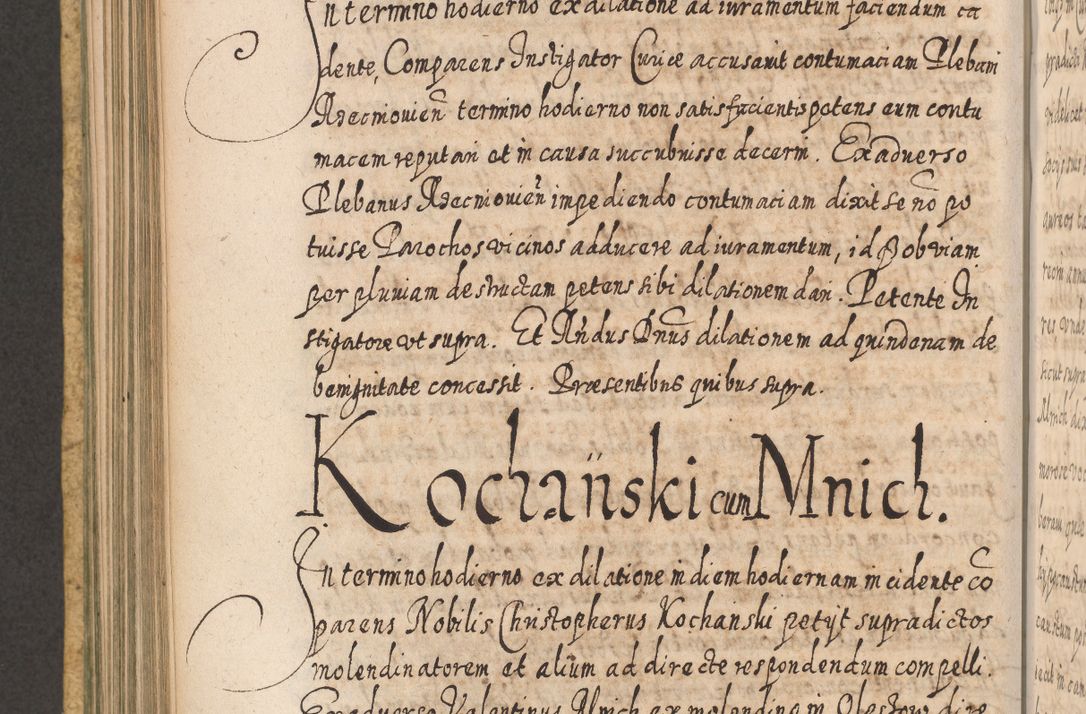 In termino hodierno ex dilatione ad iuramentum faciendum ca
dente, Comparens Instigator Curiæ accusavit contumaciam Plebani
termino hodierno non satisfacientis petens eum contu
macem reputari et in causa succubuisse decerni. Ex adverso
Plebanus impediendo contumaciam dixit se nō po
tuisse Parochos vicinos adducere ad iuramentum, id ob viam
per pluviam destructam petens sibi dilationem dari. Petente In
stigatore ut supra. Et Rńdus Dnūs dilationem ad quindenam de
benignitate concessit. Præsentibus quibus supra.
Kochański cum Mnich.
In termino hodierno ex dilatione in diem hodiernam incidente cō
parens Nobilis Christopherus Kochanski petijt supradictos
molendinatorem et alium ad directe respondendum compelli.
Ex adverso Valentinus Mnich ex molendino in Oleszow dire